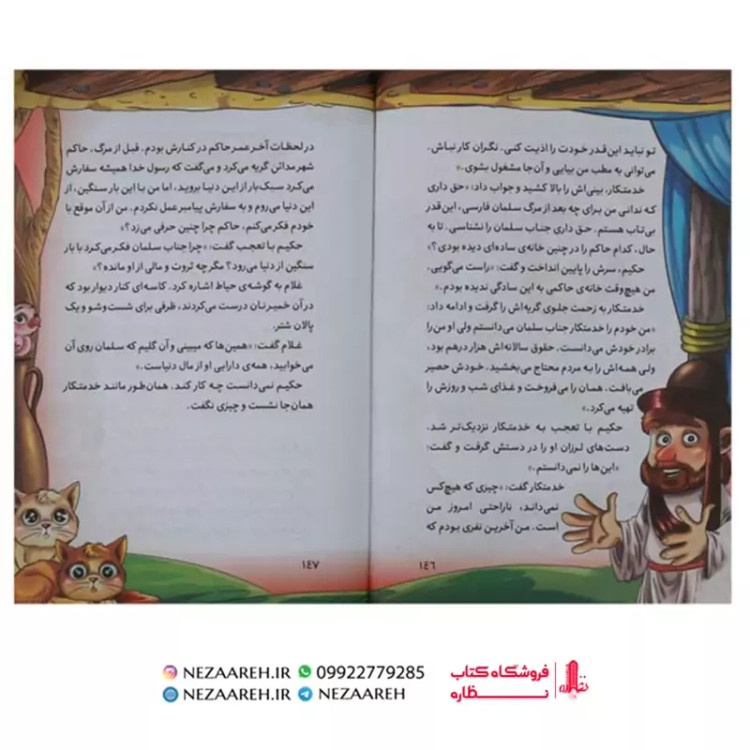 تو نباید این‌قدر خودت را اذیت کنی. نگران کار نباش.
می‌توانی به مطب من بیایی و آن‌جا مشغول بشوی.»
خدمتکار، بینی‌اش را بالا کشید و جواب داد: «حق داری
که ندانی من برای چه بعد از مرگ سلمان فارسی، این‌قدر
بی‌تاب هستم. حق داری جناب سلمان را نشناسی. تا به
حال، کدام حاکم را در چنین خانه‌ی ساده‌ای دیده بودی؟»
حکیم، سرش را پایین انداخت و گفت: «راست می‌گویی.
من هیچ‌وقت خانه‌ی حاکمی به این سادگی ندیده بودم.»
خدمتکار به زحمت جلوی گریه‌اش را گرفت و ادامه داد:
«من خودم را خدمتکار جناب سلمان می‌دانستم ولی او من را
برادر خودش می‌دانست. حقوق سالانه‌اش هزار درهم بود،
ولی همه‌اش را به مردم محتاج می‌بخشید. خودش حصیر
می‌بافت. همان را می‌فروخت و غذای شب و روزش را
تهیه می‌کرد.»
حکیم با تعجب به خدمتکار نزدیک‌تر شد.
دست‌های لرزان او را در دستش گرفت و گفت:
«این‌ها را نمی‌دانستم.»
خدمتکار گفت: «چیزی که هیچ‌کس
نمی‌داند، ناراحتی امروز من
است. من آخرین نفری بودم که
۱۴۶
در لحظات آخر عمر حاکم در کنارش بودم. قبل از مرگ، حاکم
شهر مدائن گریه می‌کرد و می‌گفت که رسول خدا همیشه سفارش
می‌کرد سبک‌بار از این دنیا بروید، اما من با این بار سنگین، از
این دنیا می‌روم و به سفارش پیامبر عمل نکردم. من از آن موقع با
خودم فکر می‌کنم، حاکم چرا چنین حرفی می‌زد؟»
حکیم با تعجب گفت: «چرا جناب سلمان فکر می‌کرد با بار
سنگین از دنیا می‌رود؟ مگر چه ثروت و مالی از او مانده؟»
غلام به گوشه‌ی حیاط اشاره کرد. کاسه‌ای کنار دیوار بود که
در آن خمیرنان درست می‌کردند، ظرفی برای شست‌وشو و یک
پالان شتر.
غلام گفت: «همین‌ها که میبینی و آن گلیم که سلمان روی آن
می‌خوابید، همه‌ی دارایی او از مال دنیاست.»
حکیم نمی‌دانست چه کار کند. همان‌طور مانند خدمتکار
همان‌جا نشست و چیزی نگفت.
۱۴۷
NEZAAREH.IR 09922779285
NEZAAREH.IR NEZAAREH
فروشگاه کتاب
نظاره